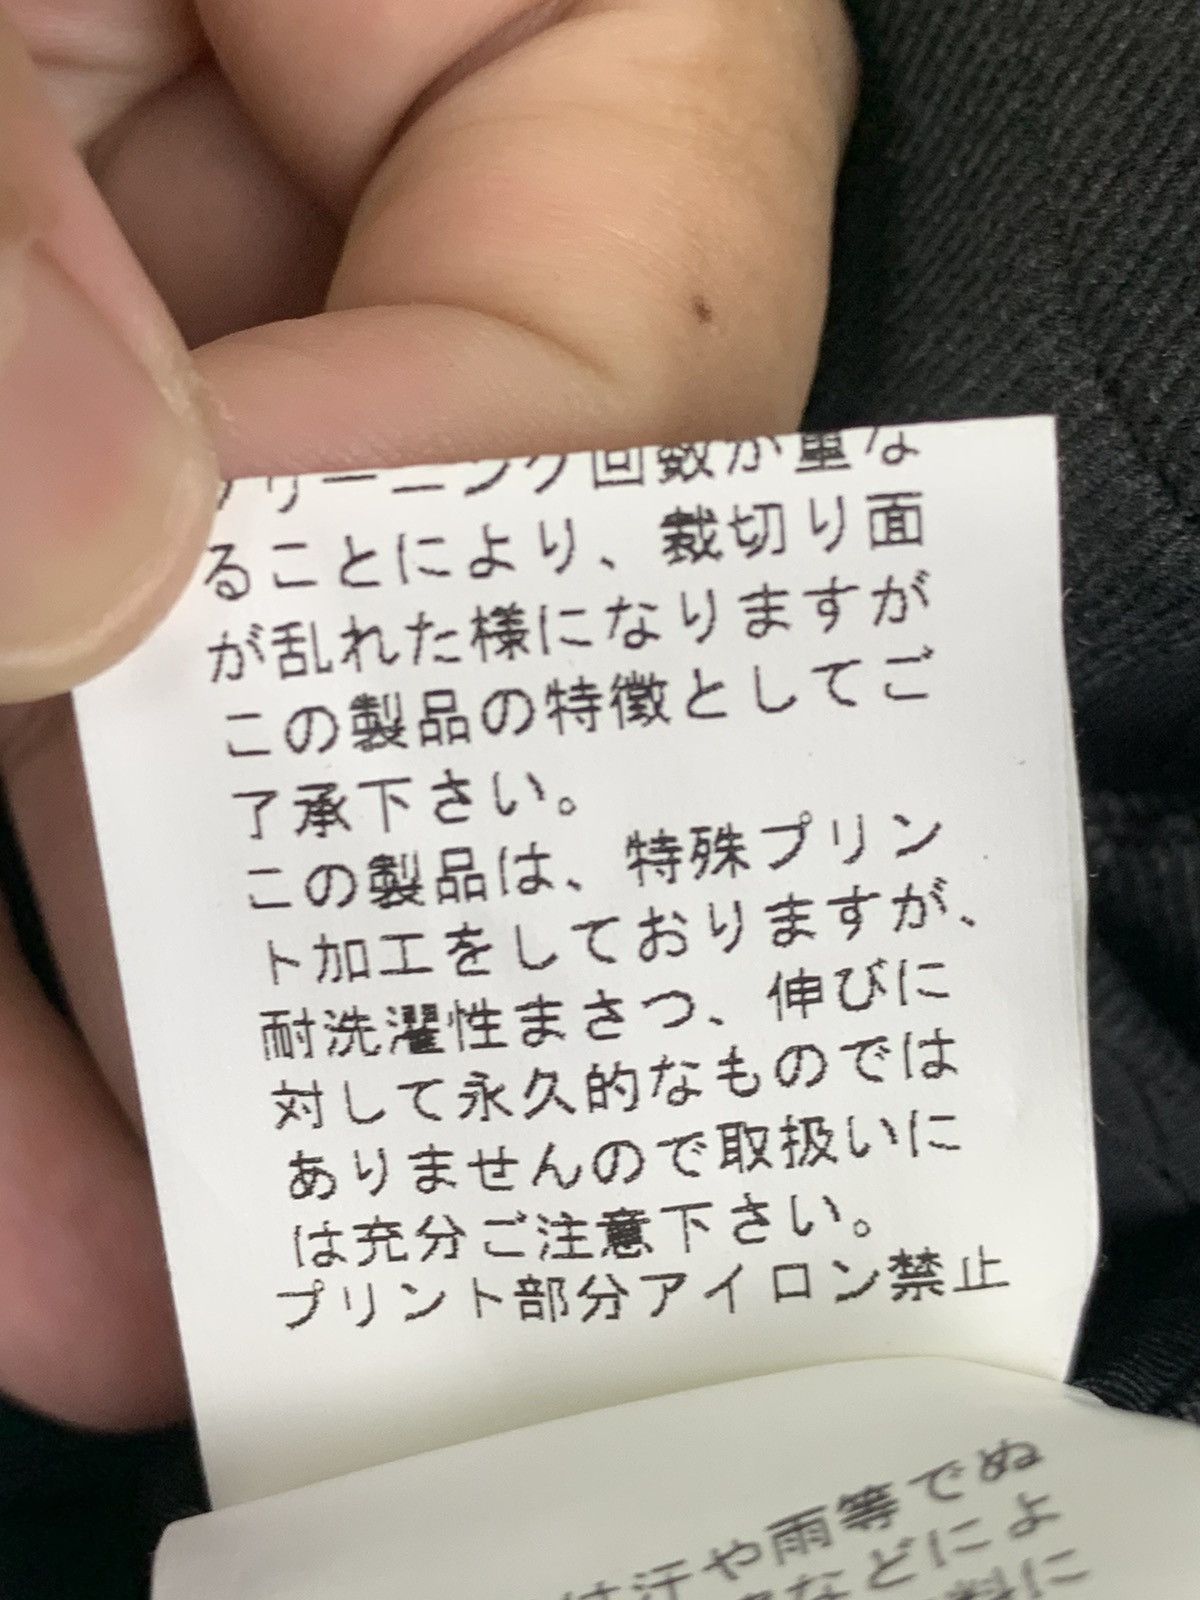 クリーニング回数が重な
ることにより、裁切り面
が乱れた様になりますが
この製品の特徴としてご
了承下さい。
この製品は、特殊プリン
ト加工をしておりますが、
耐洗濯性まさつ、伸びに
対して永久的なものでは
ありませんので取扱いに
は充分ご注意下さい。
プリント部分アイロン禁止
は汗や雨等でぬ
などによ
に